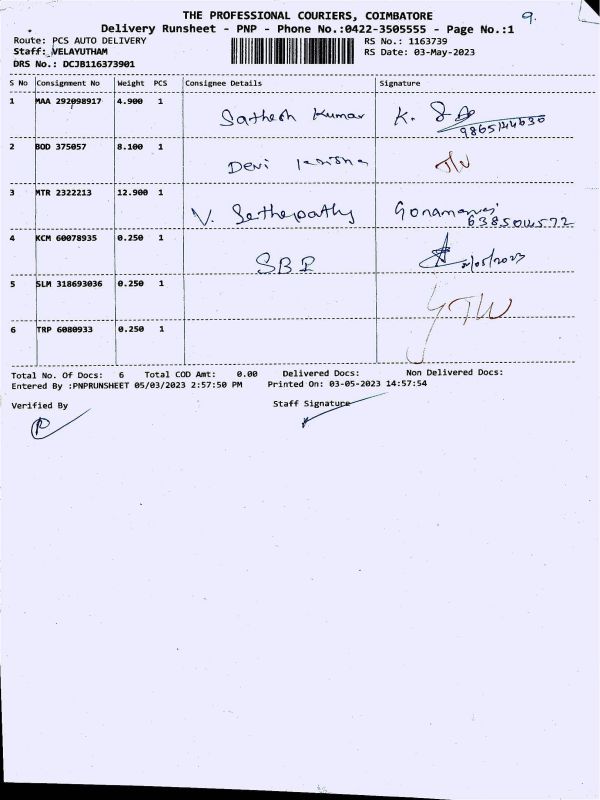 THE PROFESSIONAL COURIERS, COIMBATORE 9.
Delivery Runsheet - PNP - Phone No.:0422-3505555 - Page No.:1
Route: PCS AUTO DELIVERY RS No.: 1163739
Staff: VELAYUTHAM RS Date: 03-May-2023
DRS No.: DCJB116373901
S No Consignment No Weight PCS Consignee Details Signature
1 MAA 292098917 4.900 1
Sathesh Kumar K.
2 BOD 375057 8.100 1
Devi
3 MTR 2322213 12.900 1
V. Sethupathy
4 KCM 60078935 0.250 1
SBI
5 SLM 318693036 0.250 1
6 TRP 6080933 0.250 1
Total No. Of Docs: 6 Total COD Amt: 0.00 Delivered Docs: Non Delivered Docs:
Entered By :PNPRUNSHEET 05/03/2023 2:57:50 PM Printed On: 03-05-2023 14:57:54
Verified By Staff Signature